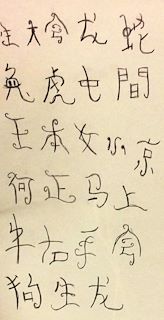 生大會龙蛇
兔虎屯間
王本女小原
何正马上
牛右手會
狗生龙